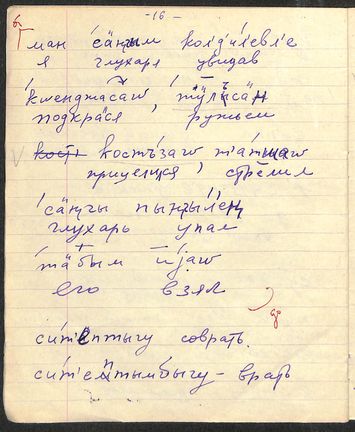 -16-
ман сӓңым ко́лдʼілʼевлʼе
я глухаря увидав
кwенджа̄саw, тӱлъсӓн
подкрался, ружьем
костъ́заw т'атшаw
прицелился, стрелил
сӓңгы пыңгылʼең
глухарь упал
тӓбым ӣjаw
его взял
си́тептыгу соврать.
си́тептымбыгу - врать